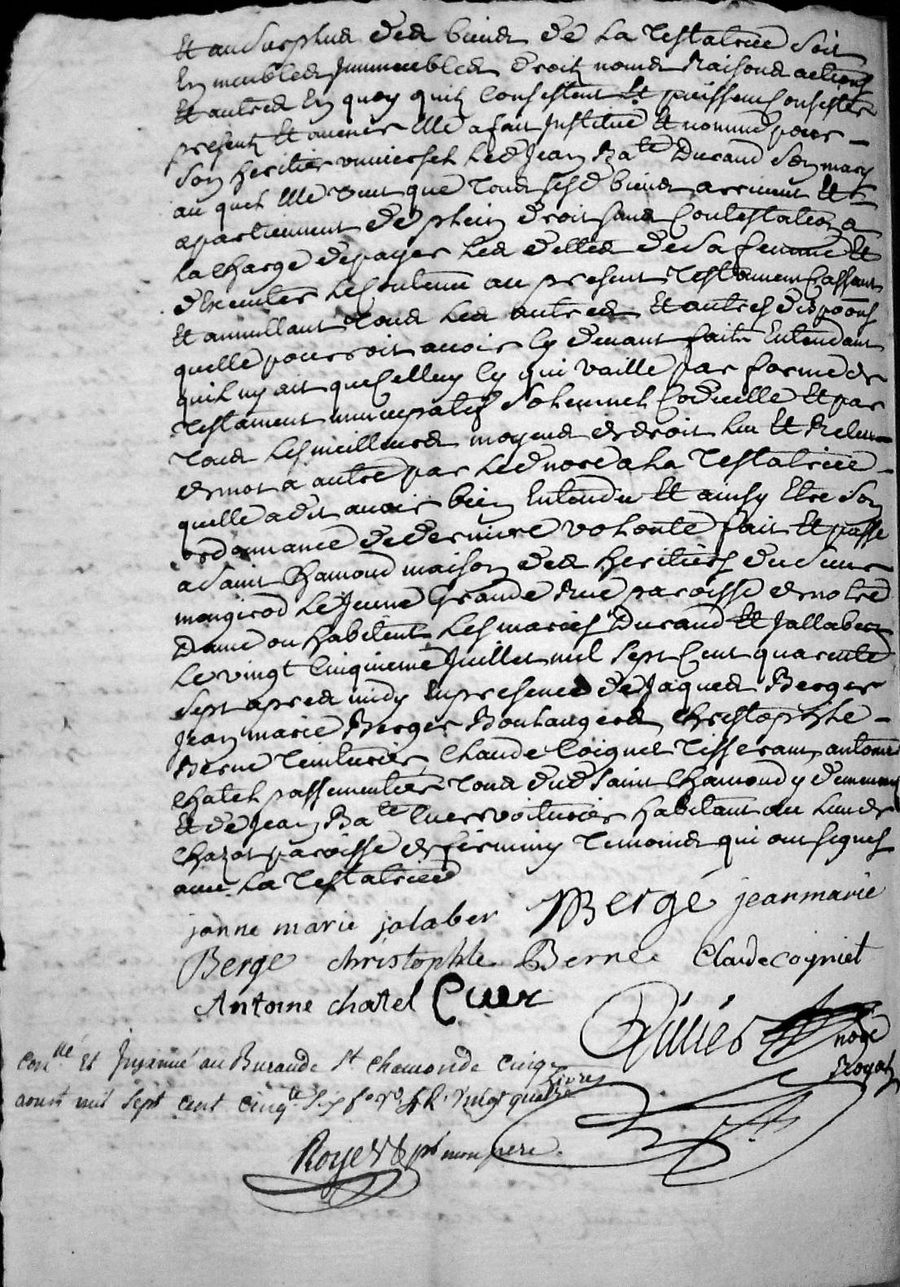 Et au Surplus des biens de La Testatrice Soit
En meubles Immeubles droits noms Raisons actions
Et autres En quoy quils Consistent Et puissent Consister
presents Et avenir Elle a fait Institué Et nommé pour
Son heritier universel Led Jean Bate Durand Son mary
au quel Elle veut que tous sesd biens arrivent Et
apartiennent de plein droit sans Contestation a
La Charge de payer Les dettes de Sa femme Et
dExecuter Le Contenu au present Testament Cassant
Et annullant Tous Les autres Et autres disponns
quelle pourroit avoir Cy devant faitte Entendant
quil ny ait que Celluy Cy qui vaille par forme de
Testament nuncupatif Solemnel Codicille Et par
Tous Les meilleurs moyens de droit Lu Et Relu
de mot a autre par Led nore a La Testatrice
quelle a dit avoir bien Entendu Et ainsy Etre Son
ordonnance de derniere volonté fait Et passé
a Saint Chamond maison des heritiers du Sieur
mongirod Le Jeune Grande Rue paroisse de notre
Dame ou habitent Les mariés Durand Et Jallabert
Le vingt Cinquieme Juillet mil Sept Cent quarente
Sept apres midy En presence de Jaques Berger
Jean marie Berger Boulangers Christophle
Berne Teinturier, Claude Coignet Tisserant, antoine
Chatel passementier Tous dud Saint Chamond y demeurants
Et de Jean Bate Cuer voiturier habitant au Lieu de
Chazot paroisse de firminy Temoins qui ont signes
avec La Testatrice
janne marie jalaber Bergé jeanmarie
Berge christophle Berne Claude coyniet
Antoine chatel Cuer
nore
Royal
Conlle Et Insinué au Bureau de St chamond Le Cinq
aoust mil Sept cent cinqte Six vingt quatre livres
Royer pr mon pere